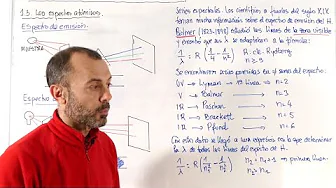 1.3. Los espectros atómicos.
Espectro de emisión.
MUESTRA
Espectro de
Series espectrales. Los científicos a finales del siglo XIX
tenían mucha información sobre el espectro de emisión del H.
Balmer (1825-1898) estudió las líneas de la zona visible
y encontró que su λ se adaptaban a la fórmula:
1/λ = R (1/4 - 1/n²) R: cte. Rydberg
n ≥ 3
Se encontraron varias fórmulas en el resto del espectro.
UV → Lyman → 1ª línea → n=2
V → Balmer → n=3
IR → Paschen → n=4
IR → Brackett → n=5
IR → Pfund → n=6
Con estos datos se llegó a una expresión que determina
la λ de todas las líneas del espectro de H.
1/λ = R (1/n₁² - 1/n₂²) n₂ = n₁+1 → primera línea